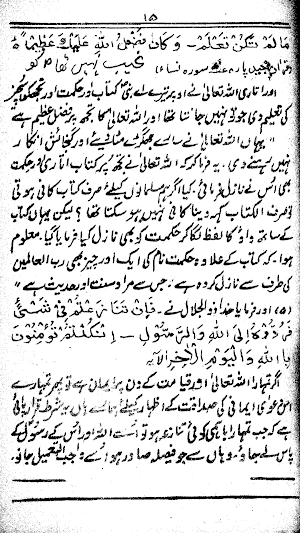 ۱۵
مَا لَمْ تَكُنْ تَعْلَمْ ـ وَ كَانَ فَضْلُ اللّٰهِ عَلَيْكَ عَظِيْمًا ۝
سورہ نساء)
اور اتاری اللہ تعالیٰ نے اوپر تیرے اے نبی کتاب اور حکمت اور تجھ کو ہر چیز
کی تعلیم دی جو تو نہیں جانتا تھا اور اللہ تعالیٰ کا تجھ پر فضل عظیم ہے
یہاں اللہ تعالیٰ نے سارے جھگڑے مٹا دئیے اور گنجائش انکار
نہیں رہنے دی ـ یہ فرما کر کہ اللہ تعالیٰ نے تجھ پر کتاب اتاری اور حکمت
بھی اس نے نازل فرمائی ـ کیا اگر مسلمانوں کیلئے صرف کتاب کافی ہوتی
تو صرف الکتاب کہہ دینا کافی نہیں ہو سکتا تھا ؟ لیکن یہاں کتاب
کے ساتھ واؤ کا لفظ لگا کر حکمت کو بھی نازل کیا فرمایا گیا ـ معلوم
ہوا ـ کہ کتاب کے علاوہ حکمت نام کی ایک اور چیز بھی رب العالمین
کی طرف سے نازل کردہ ہے ـ جس سے مراد سنت اور حدیث ہے
(۵) اور فرمایا خدا ذوالجلال نے ـ فَاِنْ تَنَازَعْتُمْ فِیْ شَیْئٍ
فَرُدُّوْهُ اِلَى اللّٰهِ وَالرَّسُوْلِ ـ اِنْ كُنْتُمْ تُؤْمِنُوْنَ
بِاللّٰهِ وَالْيَوْمِ الْاٰخِرِ الآیہ
اگر تمہارا اللہ تعالیٰ اور قیامت کے دن پر ایمان ہے تو پھر تمہارے
اس دعویٰ ایمانی کی صداقت کے اظہار کیلئے ہمارے ہاں یہ شرط قرار پائی
ہے کہ جب تمہارا باہمی کوئی تنازعہ ہو تو اسے اللہ اور اس کے رسول کے
پاس لے جاؤ ـ وہاں سے جو فیصلہ صادر ہو اسے واجب التعمیل جانو